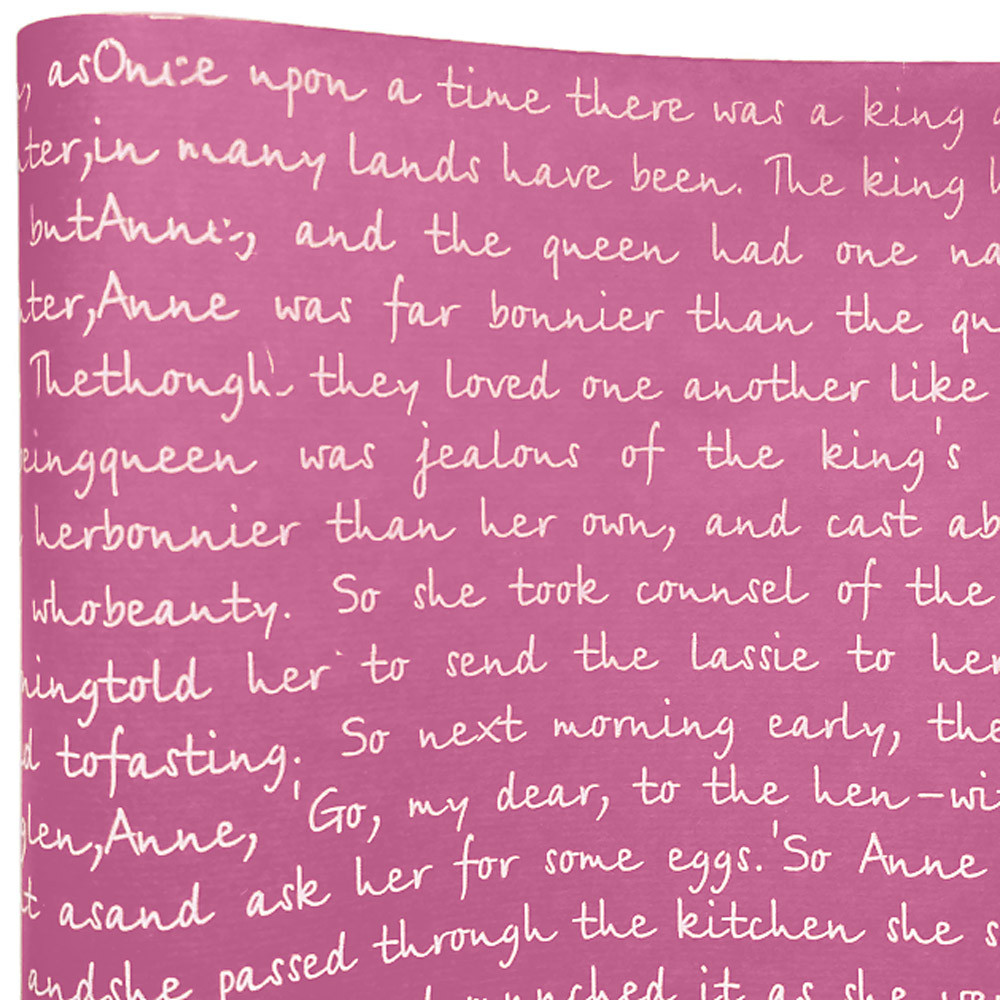 , asOnce upon a time there was a king a
ter,in many lands have been. The king h
butAnne, and the queen had one na
ter,Anne was far bonnier than the qu
Thethough they loved one another like
eingqueen was jealous of the king's
herbonnier than her own, and cast ab
whobeauty. So she took counsel of the
ningtold her to send the lassie to her
d tofasting. So next morning early, the
glen,Anne, 'Go, my dear, to the hen-wi
t asand ask her for some eggs.' So Anne
andshe passed through the kitchen she s
munched it as she we